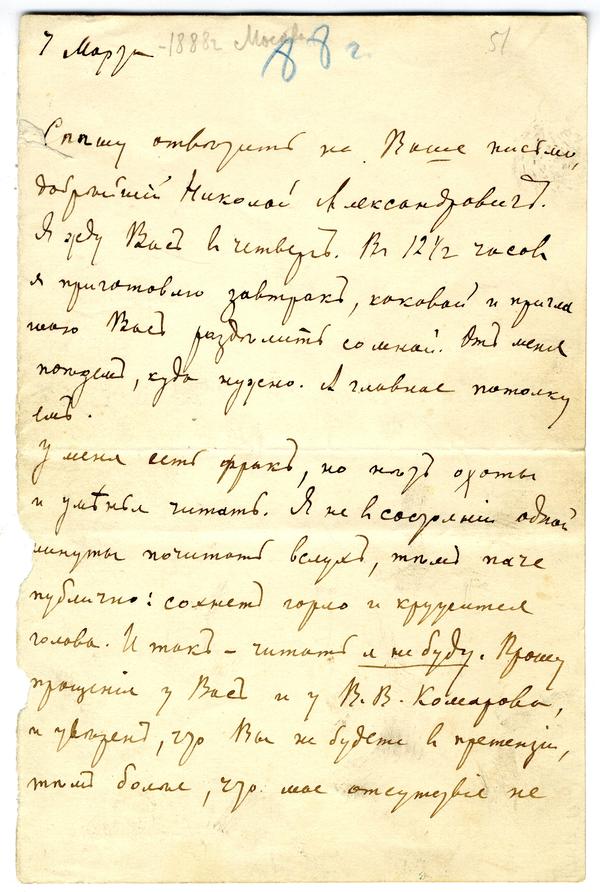 7 Марта -1888г Москва 88 г. 51
Спѣшу отвѣтить на Ваше письмо,
добрѣйшій Николай Александровичъ.
Я жду Васъ въ четвергъ. Въ 12½ часовъ
я приготовлю завтракъ, каковой и пригла
шаю Васъ раздѣлить со мной. Отъ меня
поѣдемъ, куда нужно. А главное потолку
емъ.
У меня есть фракъ, но нѣтъ охоты
и умѣнья читать. Я не въ состояніи одной
минуты почитать вслухъ, тѣмъ паче
публично: сохнетъ горло и кружится
голова. Итакъ – читать я не буду. Прошу
прощенія у Васъ и у В. В. Комарова,
и увѣренъ, что Вы не будете въ претензіи,
тѣмъ болѣе, что мое отсутствіе не